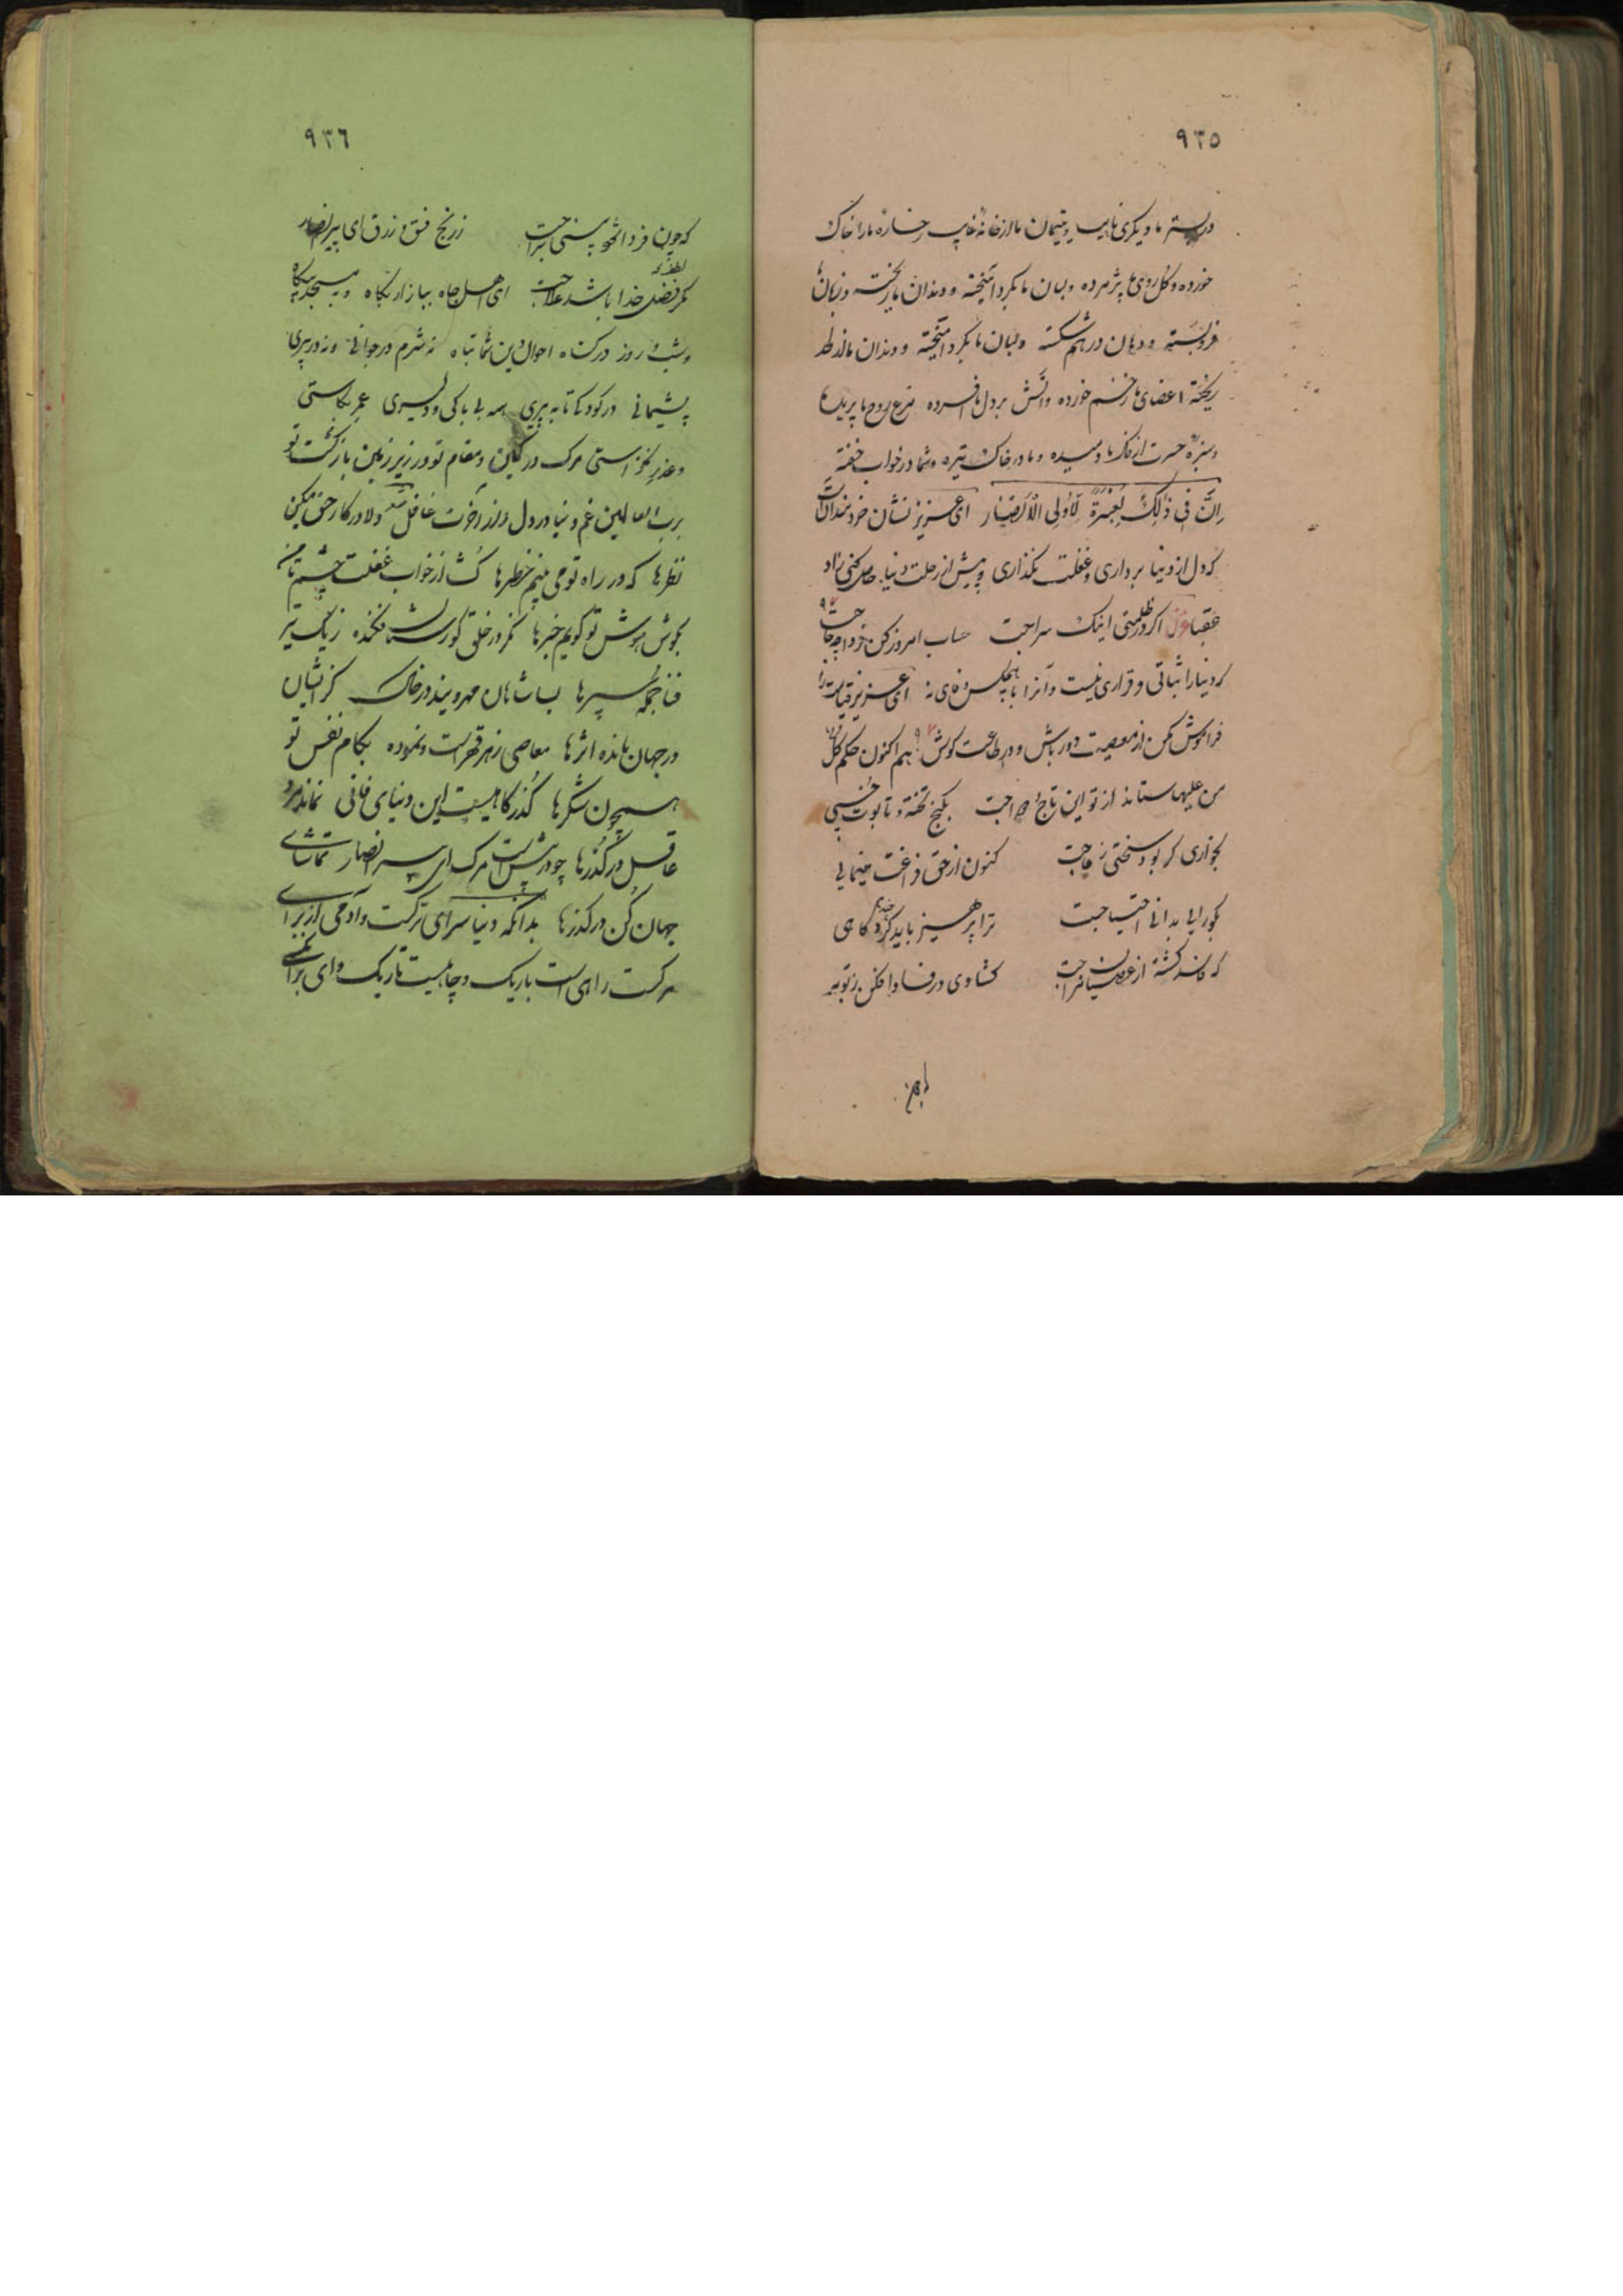 ٩٣٥
در بستر ما دیگری خوابیده و یتیمان ما از خانه غایب رخساره ما را خاک
خورده و گل روی ما پژمرده ولبان ما بگرد آمیخته و دندان ما ریخته و زبان
فروبسته و دهان درهم شکسته ولبان ما بگرد آمیخته و دندان ما
ریخته اعضای ما زخم خورده و آتش بر دل ما افسرده مرغ روح ما پریده
و سبزه حسرت از خاک ما دمیده و ما در خاک تیره و شما در خواب خفته
اِنَّ فی ذٰلِکَ لَعِبْرَةً لِاُولی الْاَبْصار ای عزیز نشان خردمندان
که دل از دنیا برداری و غفلت بگذاری و پیش از رحلت دنیا حاصل کنی زاد
عقبا غزل اگر در ظلمتی اینک سراجت حساب امروز کن فردا چه حاجت
که دنیا را ثباتی و قراری نیست و آنرا با هیچکس وفای نه ای عزیز قیامت را
فراموش مکن از معصیت دور باش و در طاعت کوش هم اکنون حکم کل
من علیها ستاند از تو این تاج بکنج تخته و تابوت خسبی
بخواری گر بود تختی ز عاجت کنون از حق فراغت مینمایی
بگور آیی بدانی احتیاجت ترا پرهیز باید کرد گاهی
که فاسد گشته از عصیان مزاجت فکن ز توبه
٩٣٦
که چون فردا شود بینی رواجت ز رنج فسق و زرق ای پیر انصار
مگر فضل خدا باشد علاجت ای اهل جاه ببازار بگاه و به مسجد بیگاه
وشب و روز در گناه احوال دین شما تباه نه شرم در جوانی و نه در پیری
پشیمانی در کودکی تا به پیری همه بی باکی و دلیری عمر بکاستی
و عذر نخواستی مرگ در کمین و مقام تو در زیر زمین بازگشت تو
برب العالمین غم دنیا در دل و از آخرت غافل دلا در کار حق میکن
نظرها که در راه تو می بینم خطرها گشا از خواب غفلت چشم تا من
بگوش هوش تو گویم خبرها نگر در خلق گورستان فکنده ز یک تیر
فنا جمله سپرها بسا شاهان مهرو بیند در خاک کز ایشان
در جهان مانده اثرها معاصی زهر قهرست و نموده بکام نفس تو
همچون شکرها گذرگاهیست این دنیای فانی نماند مرد
عاقل در گذرها چو در پیش است مرگ ای پیر انصار تماشای
جهان کن در گذرها بدانکه دنیا سرای ترکست و آدمی از برای
مرگست راهی است باریک و چاهیست تاریک وای برای کسی